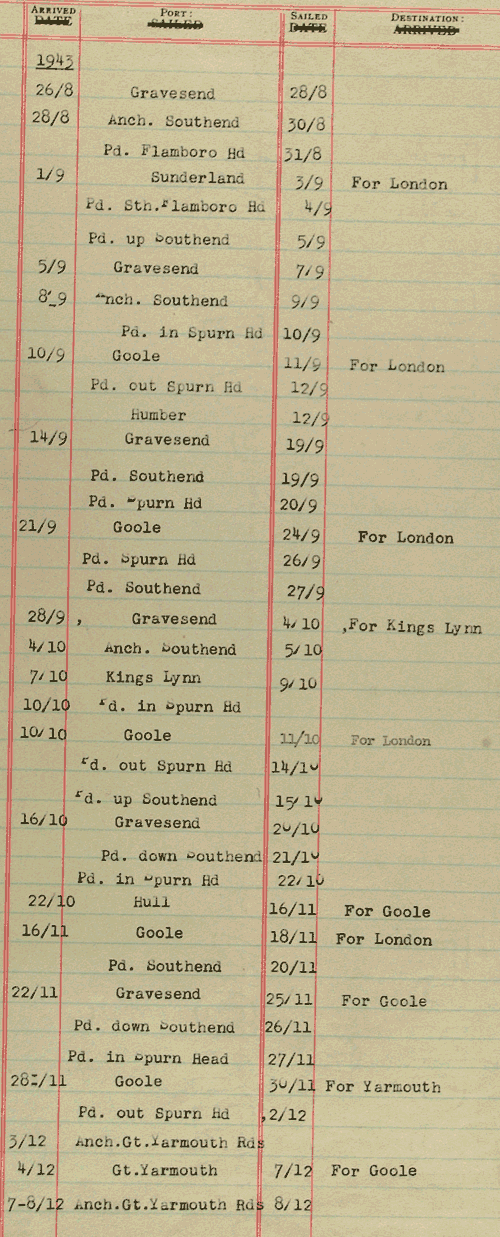 ARRIVED PORT: SAILED DESTINATION:
DATE SAILED DATE ARRIVED
1943
26/8 Gravesend 28/8
28/8 Anch. Southend 30/8
Pd. Flamboro Hd 31/8
1/9 Sunderland 3/9 For London
Pd. Sth.Flamboro Hd 4/9
Pd. up Southend 5/9
5/9 Gravesend 7/9
8/9 Anch. Southend 9/9
Pd. in Spurn Hd 10/9
10/9 Goole 11/9 For London
Pd. out Spurn Hd 12/9
Humber 12/9
14/9 Gravesend 19/9
Pd. Southend 19/9
Pd. Spurn Hd 20/9
21/9 Goole 24/9 For London
Pd. Spurn Hd 26/9
Pd. Southend 27/9
28/9 , Gravesend 4/10 ,For Kings Lynn
4/10 Anch. Southend 5/10
7/10 Kings Lynn 9/10
10/10 Pd. in Spurn Hd
10/10 Goole 11/10 For London
Pd. out Spurn Hd 14/10
Pd. up Southend 15/10
16/10 Gravesend 20/10
Pd. down Southend 21/10
Pd. in Spurn Hd 22/10
22/10 Hull 16/11 For Goole
16/11 Goole 18/11 For London
Pd. Southend 20/11
22/11 Gravesend 25/11 For Goole
Pd. down Southend 26/11
Pd. in Spurn Head 27/11
28/11 Goole 30/11 For Yarmouth
Pd. out Spurn Hd ,2/12
3/12 Anch.Gt.Yarmouth Rds
4/12 Gt.Yarmouth 7/12 For Goole
7-8/12 Anch.Gt.Yarmouth Rds 8/12